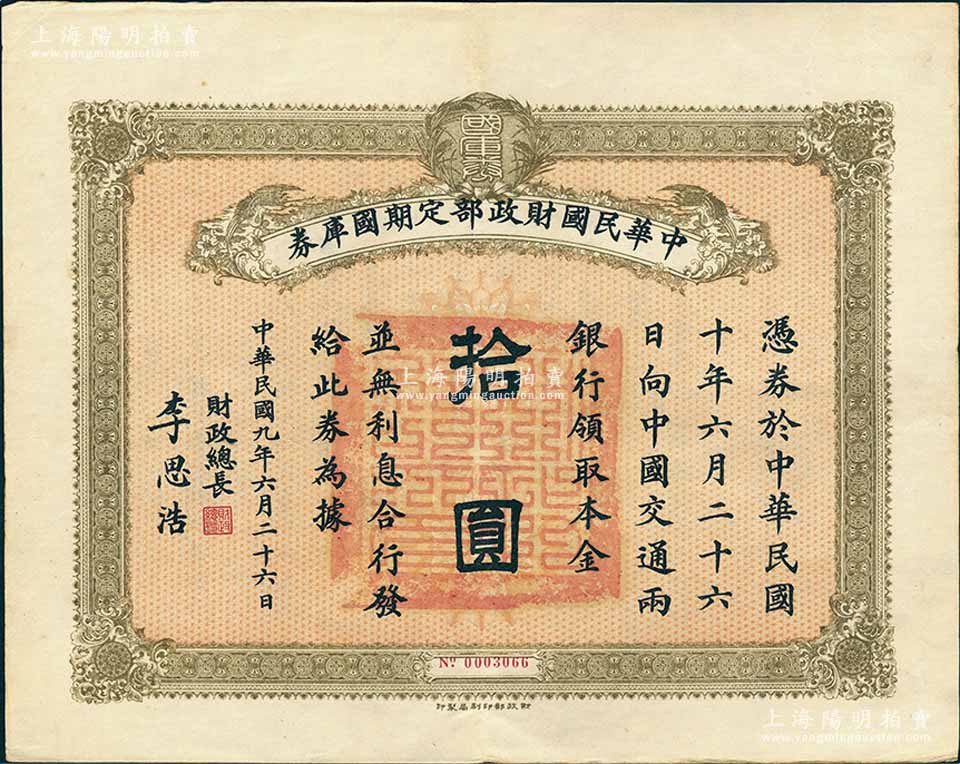 上海陽明拍賣
www.yangmingauction.com
國庫券
中華民國財政部定期國庫券
憑券於中華民國
十年六月二十六
日向中國交通兩
銀行領取本金
拾圓
並無利息合行發
給此券為據
中華民國九年六月二十六日
財政總長
李思浩
上海陽明拍賣
www.yangmingauction.com
Nº 0003066
財政部印刷局製印
上海陽明拍賣
www.yangmingauction.com